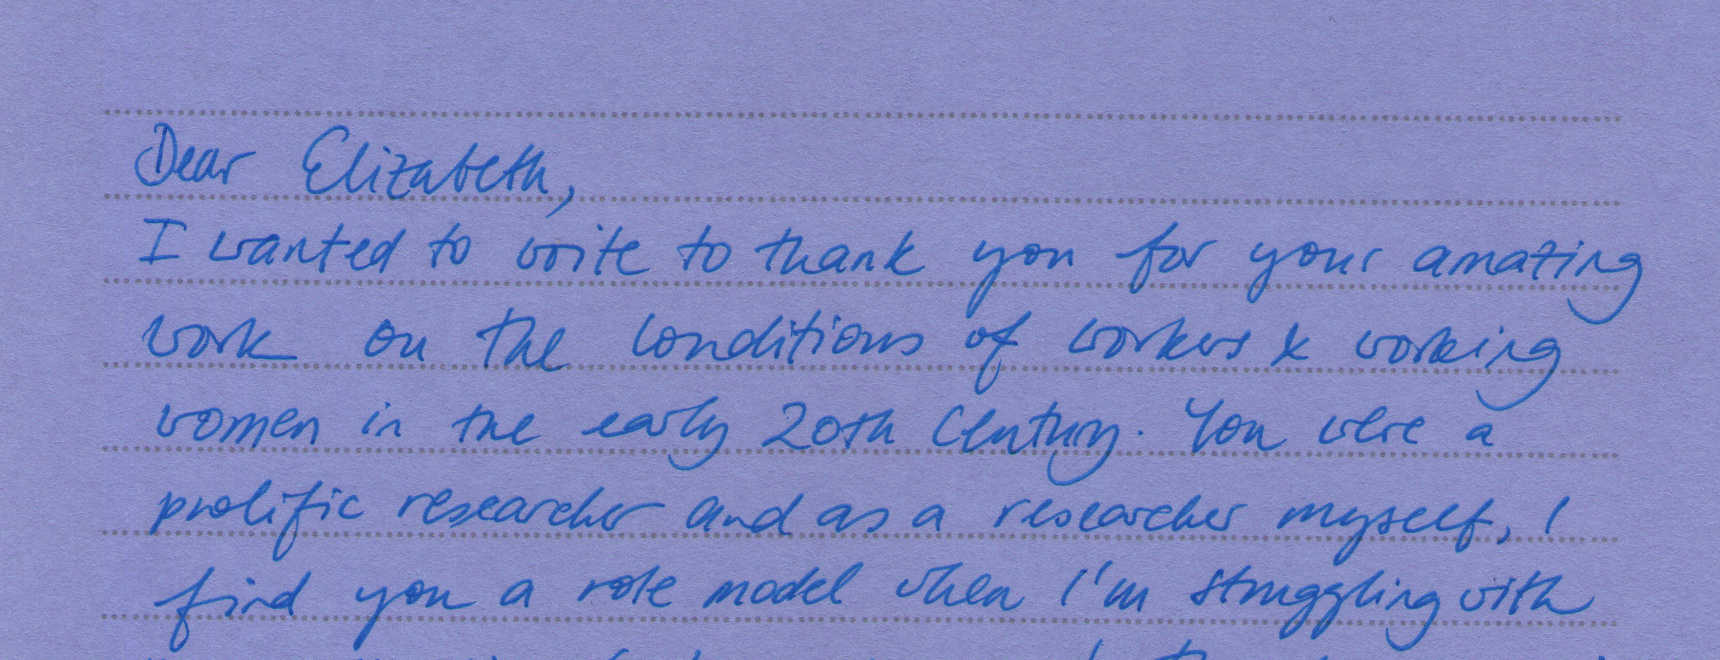 Dear Elizabeth,
I wanted to write to thank you for your amazing
work on the conditions of workers & working
women in the early 20th Century. You were a
prolific researcher and as a researcher myself, I
find you a role model when I'm struggling with